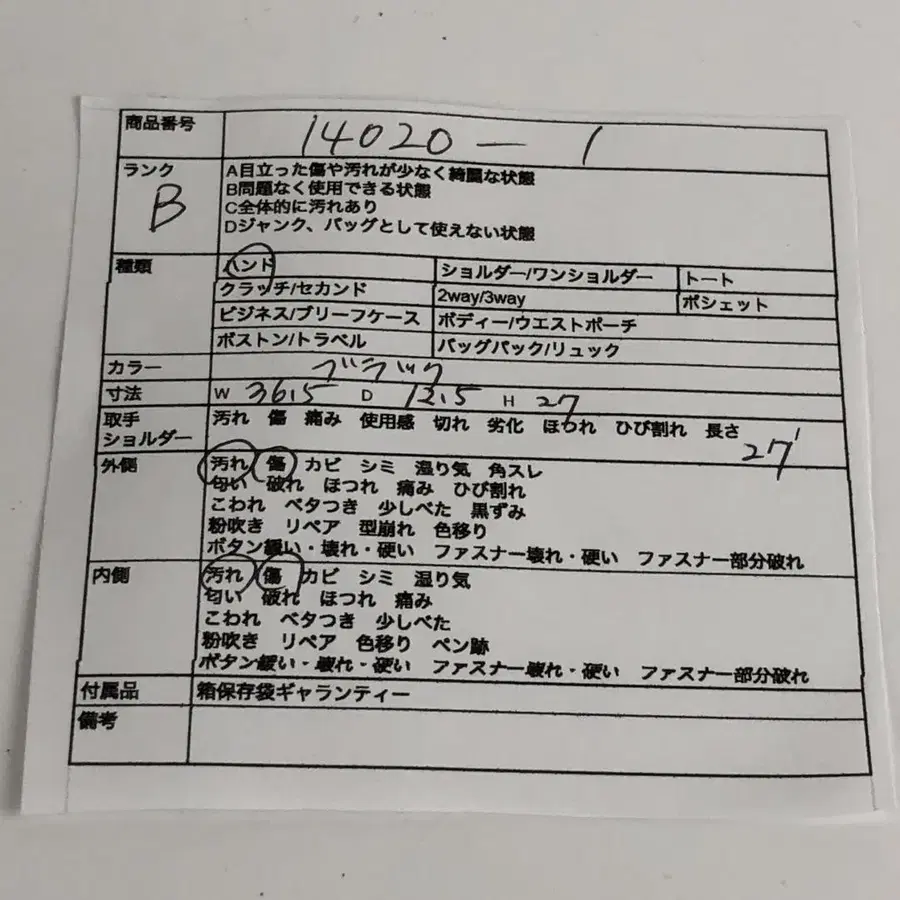 商品番号 14020 ー 1
ランク B
A目立った傷や汚れが少なく綺麗な状態
B問題なく使用できる状態
C全体的に汚れあり
Dジャンク、バッグとして使えない状態
種類 ハンド ショルダー/ワンショルダー トート
クラッチ/セカンド 2way/3way ポシェット
ビジネス/ブリーフケース ボディー/ウエストポーチ
ボストン/トラベル バッグパック/リュック
カラー ブラック
寸法 W 36.5 D 12.5 H 27
取手 汚れ 傷 痛み 使用感 切れ 劣化 ほつれ ひび割れ 長さ
ショルダー 27
外側 汚れ 傷 カビ シミ 湿り気 角スレ
匂い 破れ ほつれ 痛み ひび割れ
こわれ ベタつき 少しべた 黒ずみ
粉吹き リペア 型崩れ 色移り
ボタン緩い・壊れ・硬い ファスナー壊れ・硬い ファスナー部分破れ
内側 汚れ 傷 カビ シミ 湿り気
匂い 破れ ほつれ 痛み
こわれ ベタつき 少しべた
粉吹き リペア 色移り ペン跡
ボタン緩い・壊れ・硬い ファスナー壊れ・硬い ファスナー部分破れ
付属品 箱保存袋ギャランティー
備考